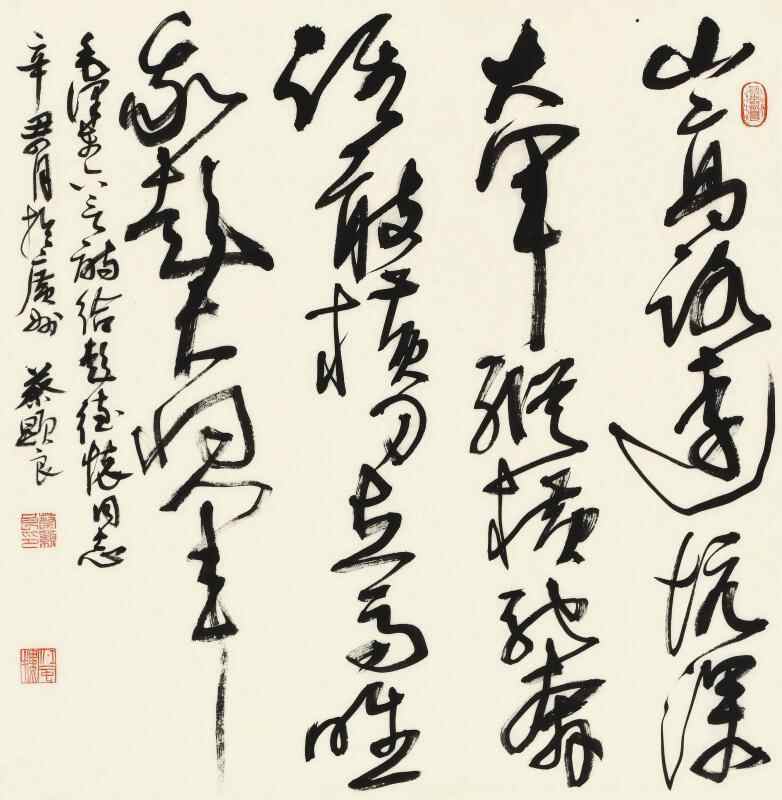 山高路遠坑深
大軍縱橫馳奔
誰敢橫刀立馬唯
我彭大將軍
毛澤東六言詩給彭德懷同志
辛丑月於廣州 蔡顯良